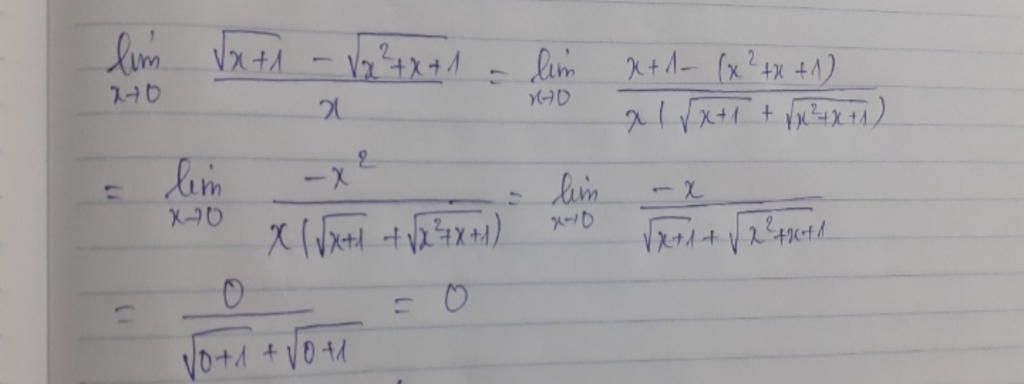 lim x→0 (√(x+1) - √(x²+x+1)) / x = lim x→0 (x+1 - (x²+x+1)) / (x(√(x+1) + √(x²+x+1)))
= lim x→0 (-x²) / (x(√(x+1) + √(x²+x+1))) = lim x→0 (-x) / (√(x+1) + √(x²+x+1))
= 0 / (√(0+1) + √(0+1)) = 0